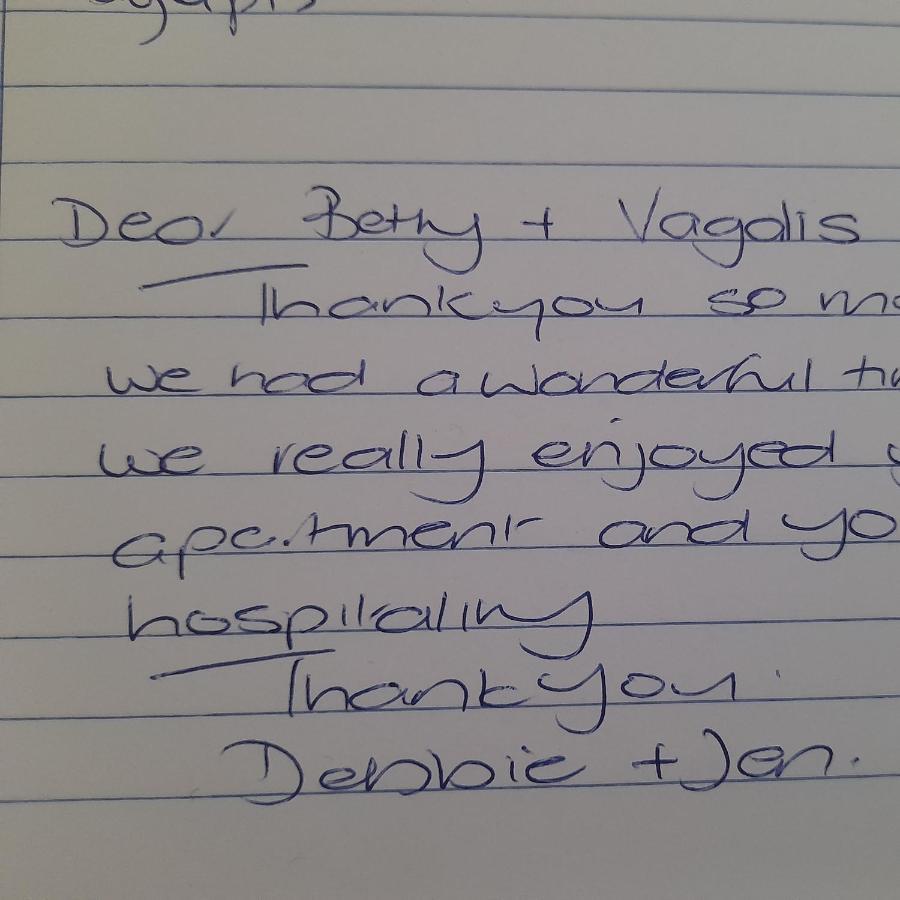 Dear Betty + Vagalis
Thankyou so
we had a wonderful
we really enjoyed
apartment and
hospitality
Thank you.
Debbie + Jen.